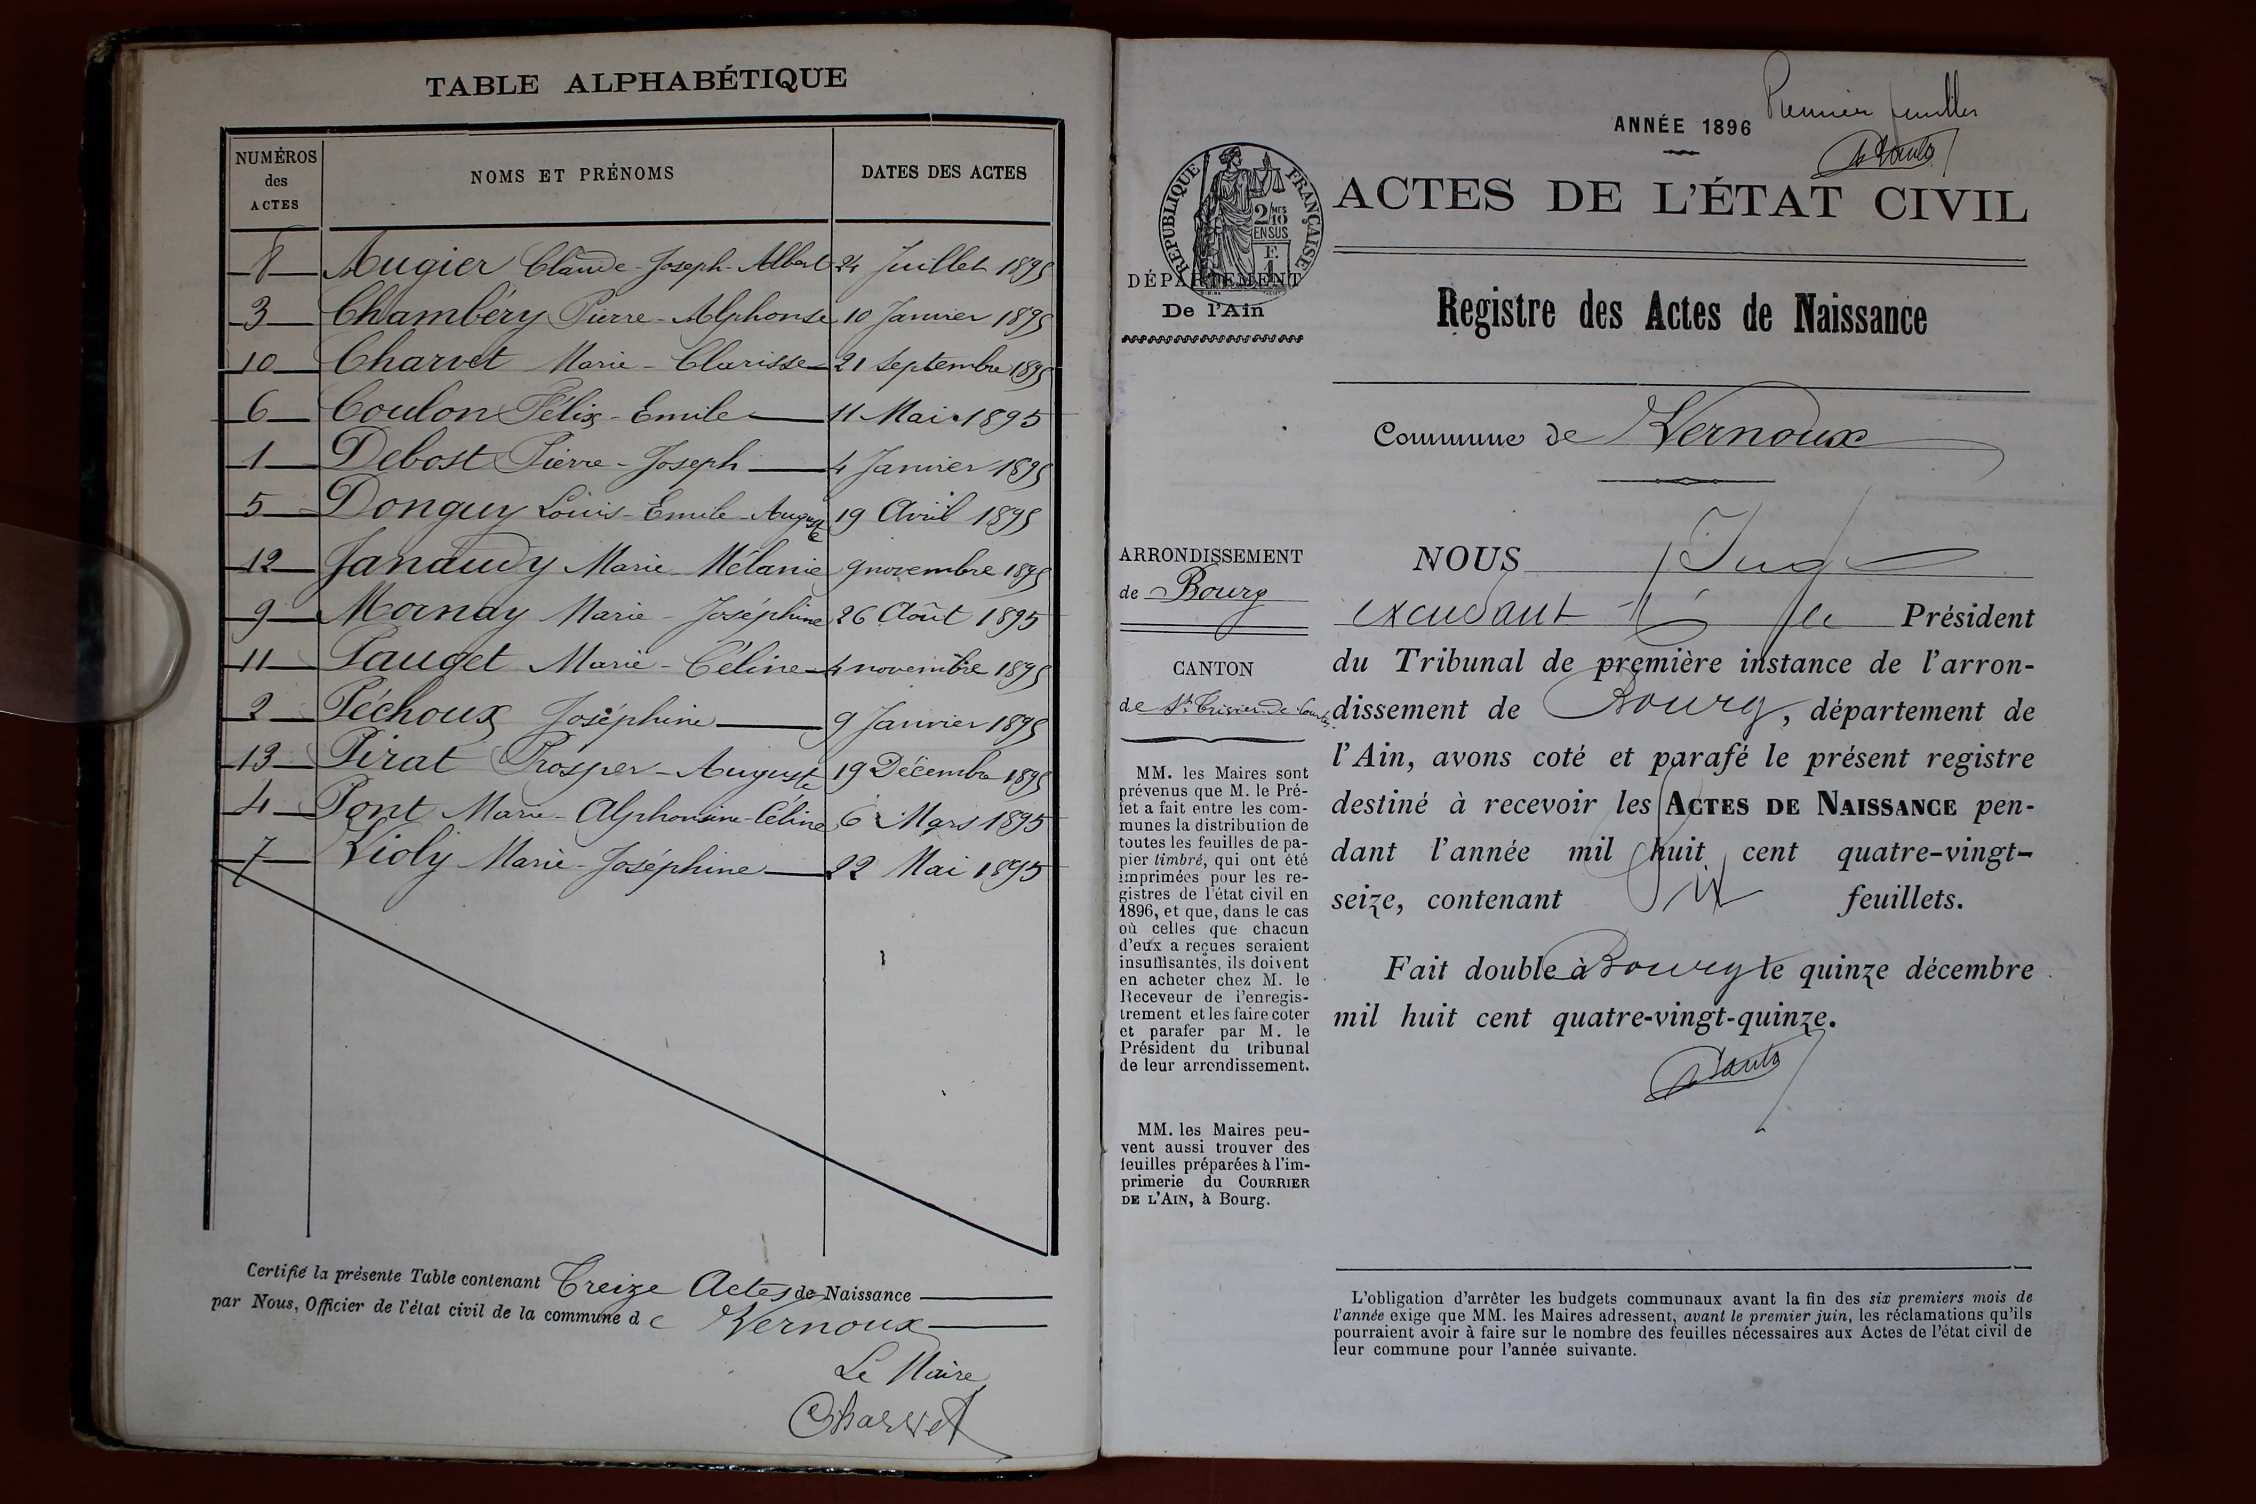 TABLE ALPHABÉTIQUE
NUMÉROS des ACTES NOMS ET PRÉNOMS DATES DES ACTES
8 Augier Claude-Joseph-Albert 24 Juillet 1895
3 Chambéry Pierre-Alphonse 10 Janvier 1895
10 Charvet Marie-Clarisse 21 Septembre 1895
6 Coulon Félix-Emile 11 Mai 1895
1 Debost Pierre-Joseph 4 Janvier 1895
5 Donguy Louis-Emile-Auguste 19 Avril 1895
12 Janaudy Marie-Mélanie 9 novembre 1895
9 Mornay Marie-Joséphine 26 Août 1895
11 Pauget Marie-Céline 4 novembre 1895
2 Péchoux Joséphine 9 Janvier 1895
13 Pirat Prosper-Auguste 19 Décembre 1895
4 Pont Marie-Alphonsine-Céline 6 Mars 1895
7 Violy Marie-Joséphine 22 Mai 1895
Certifié la présente Table contenant Treize Actes de Naissance
par Nous, Officier de l'état civil de la commune de Vernoux
Le Maire
Charvet
Premier feuillet
ANNÉE 1896
RÉPUBLIQUE FRANÇAISE
2/10MES
EN SUS
F.
1
ACTES DE L'ÉTAT CIVIL
DÉPARTEMENT
De l'Ain
Registre des Actes de Naissance
Commune de Vernoux
ARRONDISSEMENT
de Bourg
CANTON
de St Trivier-de-Courtes
MM. les Maires sont
prévenus que M. le Pré-
fet a fait entre les com-
munes la distribution de
toutes les feuilles de pa-
pier timbré, qui ont été
imprimées pour les re-
gistres de l'état civil en
1896, et que, dans le cas
où celles que chacun
d'eux a reçues seraient
insuffisantes, ils doivent
en acheter chez M. le
Receveur de l'enregis-
trement et les faire coter
et parafer par M. le
Président du tribunal
de leur arrondissement.
MM. les Maires peu-
vent aussi trouver des
feuilles préparées à l'im-
primerie du COURRIER
DE L'AIN, à Bourg.
NOUS Juge
le Président
du Tribunal de première instance de l'arron-
dissement de Bourg, département de
l'Ain, avons coté et parafé le présent registre
destiné à recevoir les ACTES DE NAISSANCE pen-
dant l'année mil huit cent quatre-vingt-
seize, contenant six feuillets.
Fait double à Bourg le quinze décembre
mil huit cent quatre-vingt-quinze.
L'obligation d'arrêter les budgets communaux avant la fin des six premiers mois de
l'année exige que MM. les Maires adressent, avant le premier juin, les réclamations qu'ils
pourraient avoir à faire sur le nombre des feuilles nécessaires aux Actes de l'état civil de
leur commune pour l'année suivante.